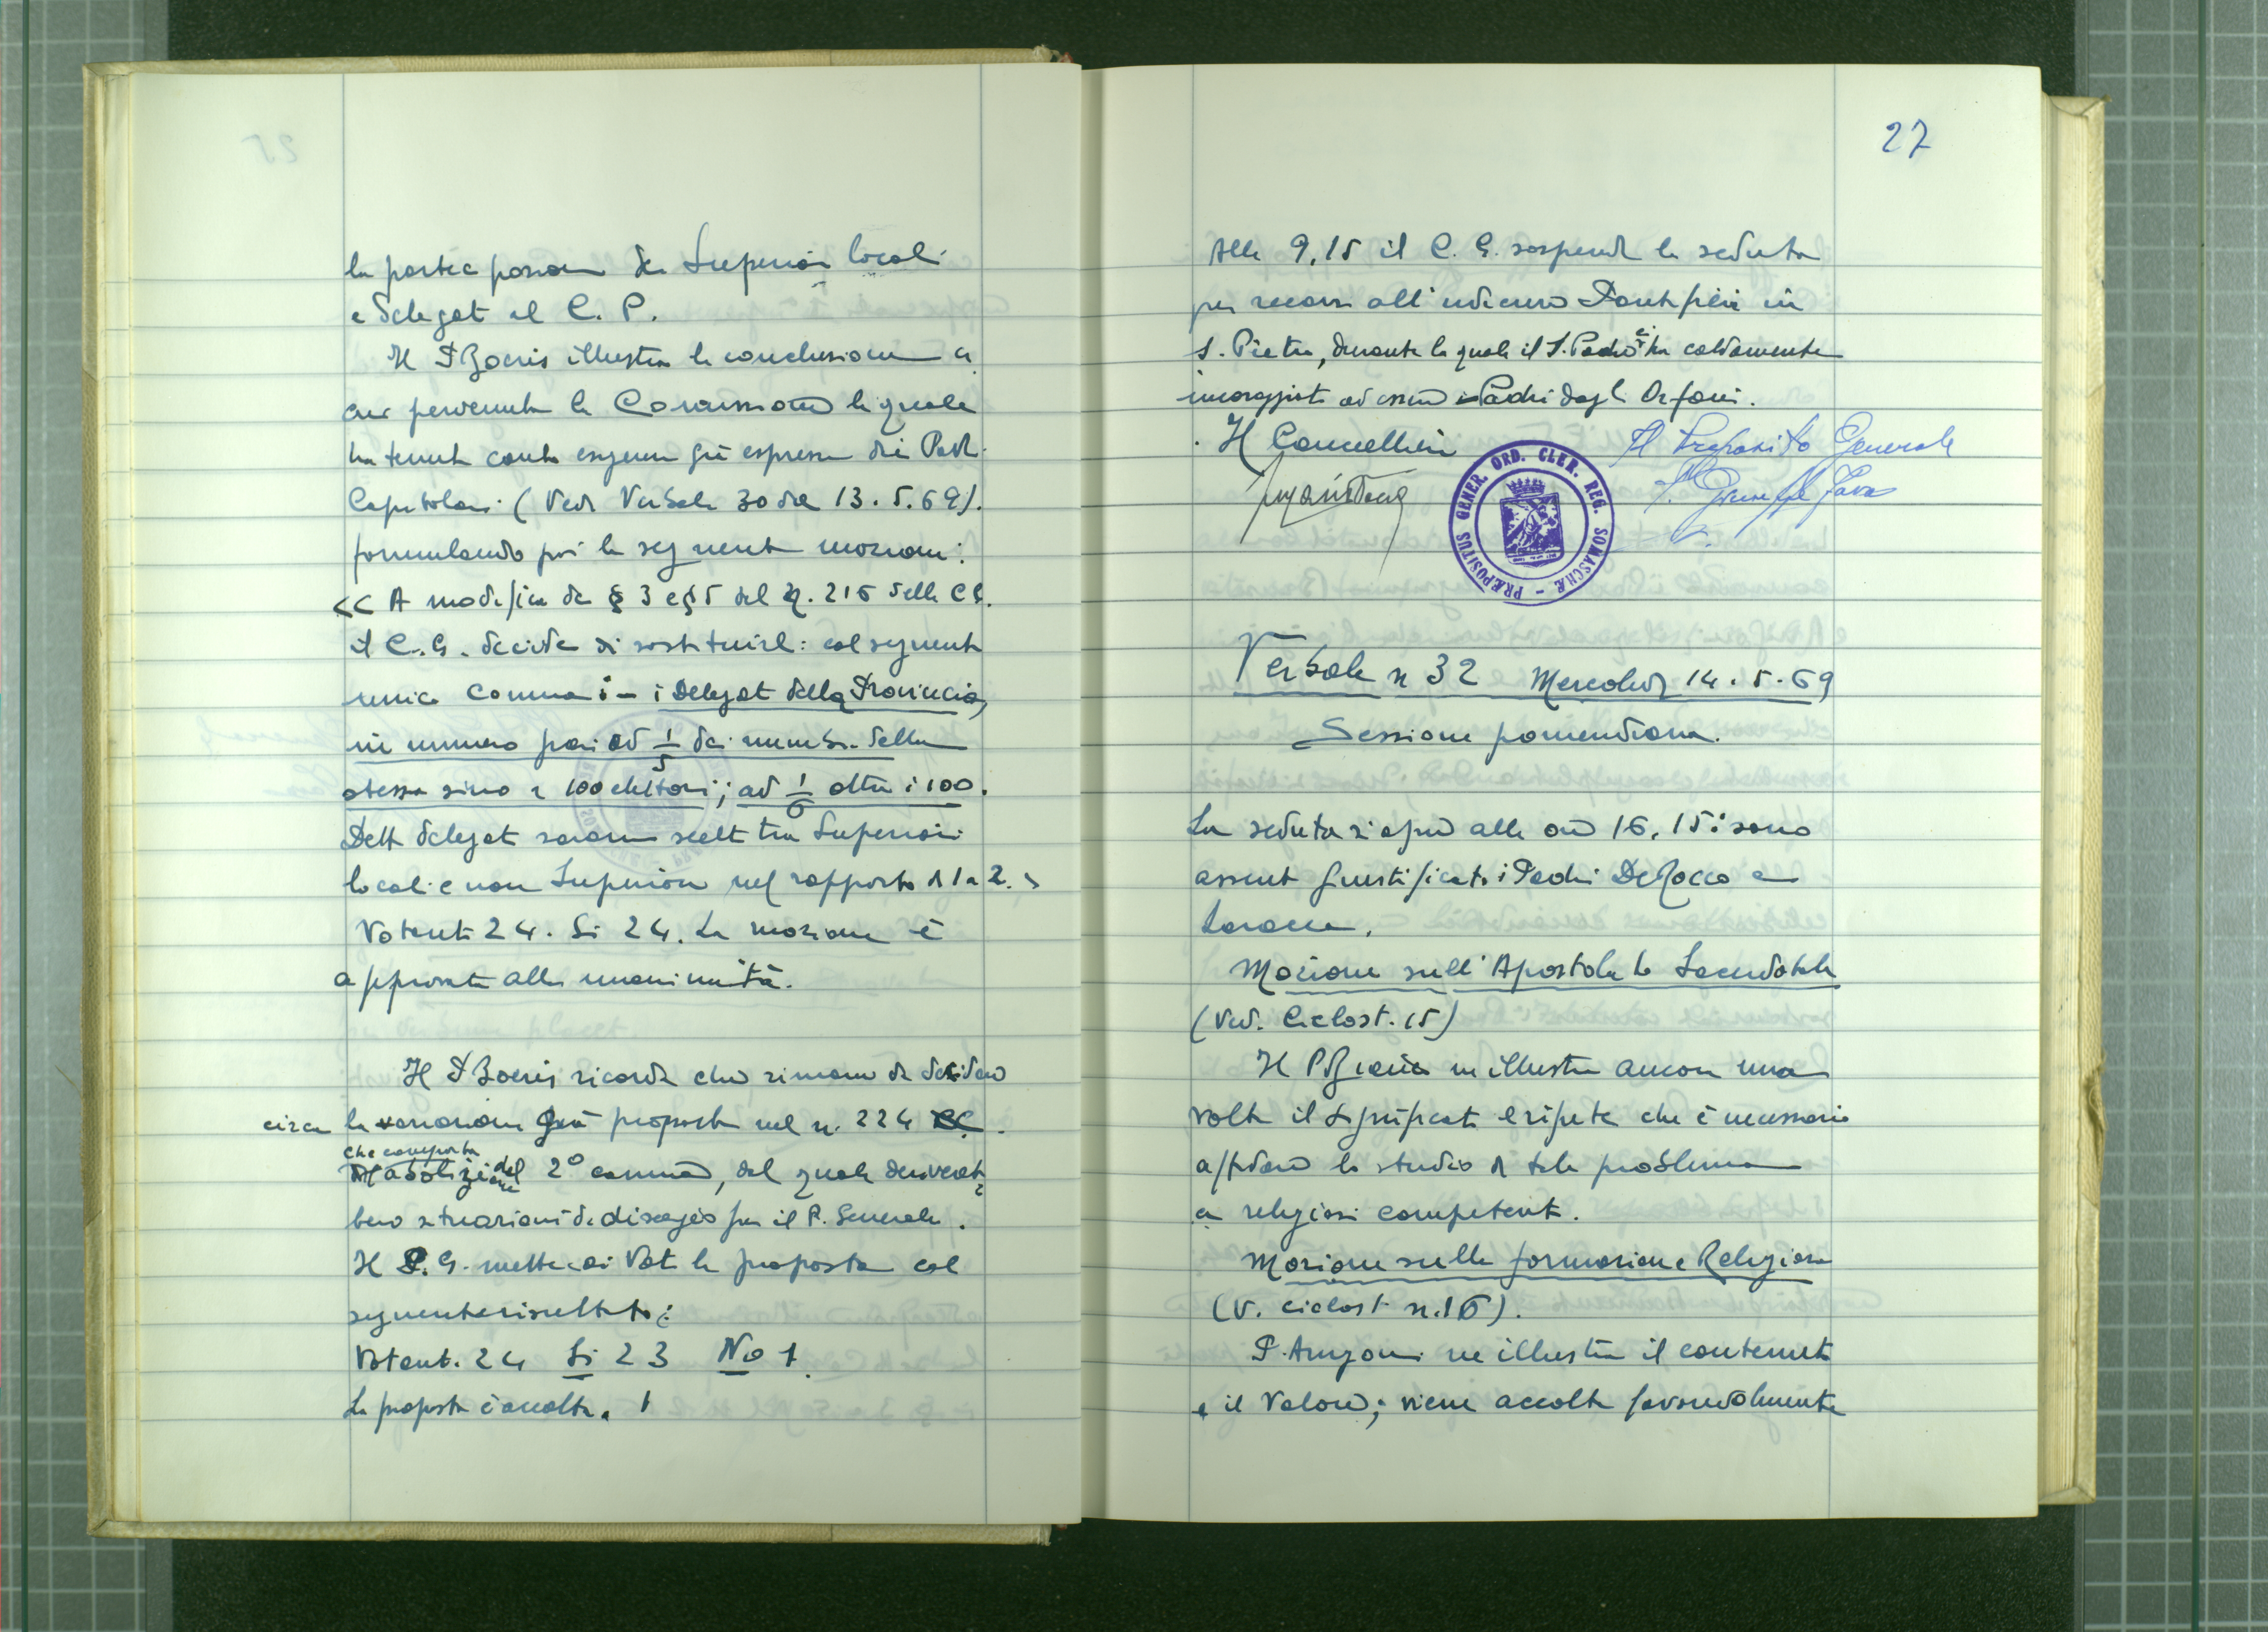 la partecipazione dei Superiori locali
e Delegati al C. P.
Il P Boeris illustra le conclusioni a
cui pervenuta la Commissione la quale
ha tenuto conto esigenze già espresse dai Padri
Capitolari (Vedi Verbale 30 del 13.5.69).
formulando poi la seguente mozione:
<< A modifica dei § 3 e § 5 del n. 216 delle CC.
il C. G. decide di sostituirli col seguente
unico comma: - i Delegati della Provincia,
in numero pari ad 1/5 dei membri della
stessa sino a 100 elettori; ad 1/6 oltre i 100.
Detti delegati saranno scelti tra Superiori
locali e non Superiori nel rapporto di 1 a 2. >
Votanti 24. Si 24. La mozione è
approvata alla unanimità.
Il P Boeris ricorda che rimane da decidere
circa la variazione già proposta nel n. 224 CC.
che comporta
abolizione del 2° comma, dal quale deriverebbero
situazioni di disagio per il P. Generale.
Il P. G. mette ai voti la proposta col
seguente risultato:
Votanti 24 Si 23 No 1.
La proposta è accolta.
27
Alle 9,15 il C. G. sospende la seduta
per recarsi all'udienza Pontificia in
S. Pietro, durante la quale il S. Padre ci ha caldamente
incoraggiati ad essere i Padri degli Orfani.
Il Cancelliere
Il Preposito Generale
P. Giuseppe Fava
PRÆPOSITUS GENER. ORD. CLER. REG. SOMASCHÆ
Verbale n 32 Mercoledì 14.5.69
Sessione pomeridiana.
La seduta si apre alle ore 16,15: sono
assenti giustificati i Padri De Rocco e
Mozione sull'Apostolato Sacerdotale
(Ved. Ciclost. 15)
Il P ne illustra ancora una
volta il significato e ripete che è necessario
affidare lo studio di tale problema
a religiosi competenti.
Mozione sulla formazione Religiosa
(V. Ciclost n. 16).
P. Arrigoni ne illustra il contenuto
e il valore; viene accolta favorevolmente